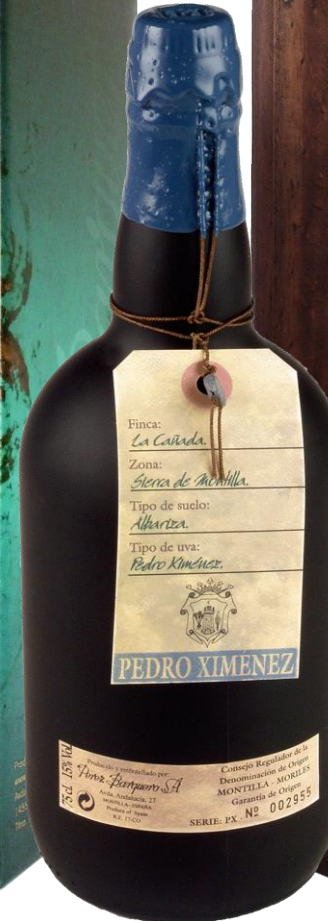 Finca:
La Cañada.
Zona:
Sierra de Montilla.
Tipo de suelo:
Albariza.
Tipo de uva:
Pedro Ximénez.
PEDRO XIMÉNEZ
75 cl. 15% Vol.
Producido y embotellado por:
Perez Barquero S.A
Avda. Andalucía, 27
MONTILLA - ESPAÑA
Produce of Spain
R.E. 17-CO
Consejo Regulador de la
Denominación de Origen
MONTILLA - MORILES
Garantía de Origen
SERIE: PX. Nº 002955